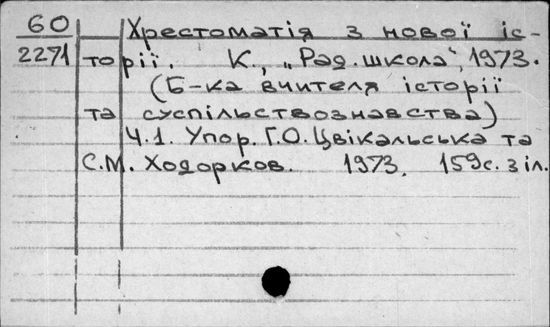 60 Хрестоматія з нової іс-
2271 торії. К., „Рад. школа", 1973.
(Б-ка вчителя історії
та суспільствознавства)
Ч.1. Упор. Г.О. Цвікальська та
С.М. Ходорков. 1973. 159с. з іл.